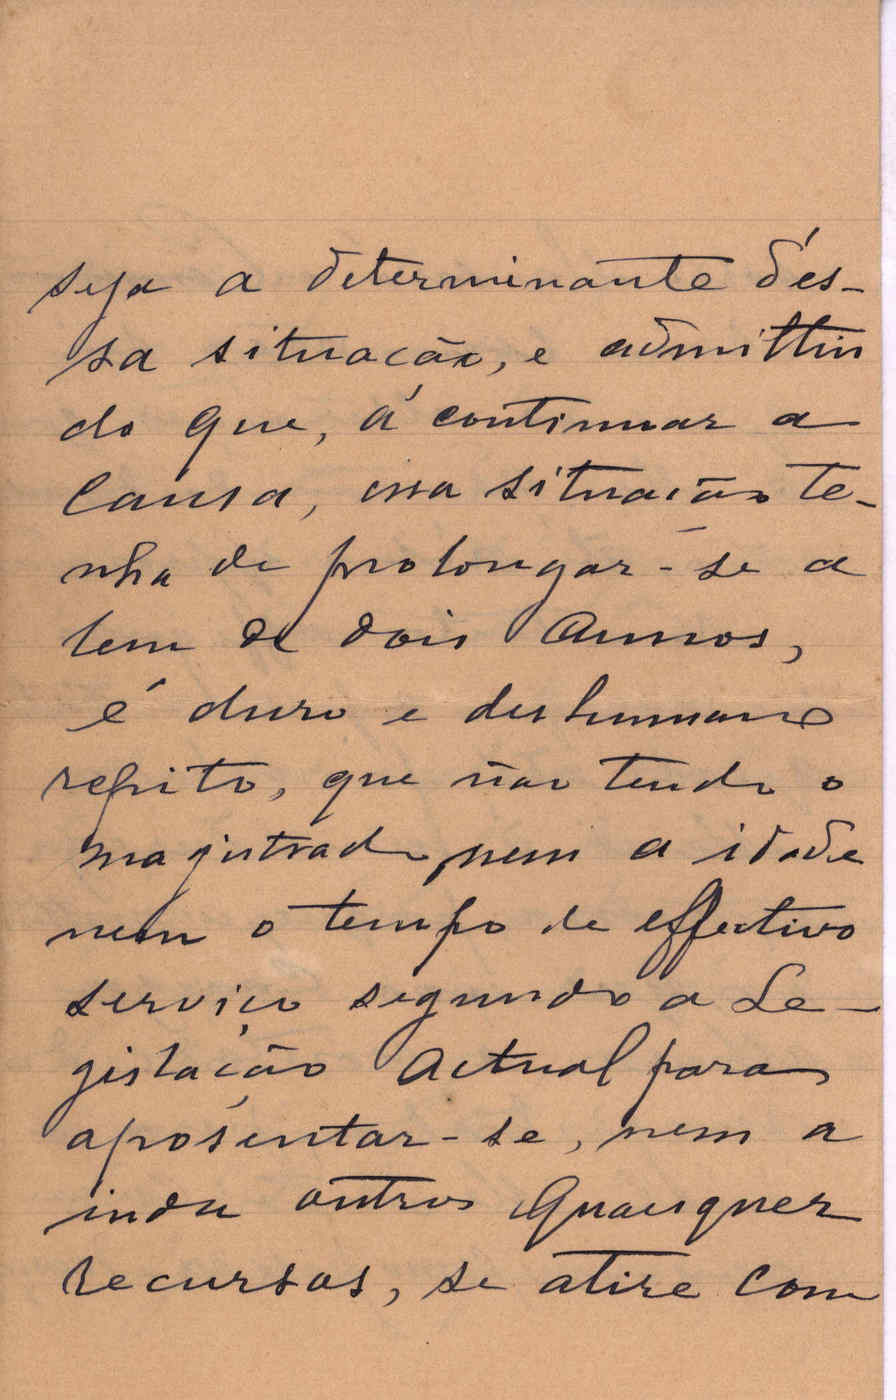 seja a determinante d'es-
sa situacão, e admittin
do que, á continuar a
causa, essa situacão te-
nha de prolongar-se a
lem de dois annos,
é duro e deshumano
repito, que não tendo o
magistrado, nem a idade
nem o tempo de effectivo
serviço segundo a Le-
gislação actual para
aposentar-se, nem a
inda outros quaesquer
recursos, se atire com